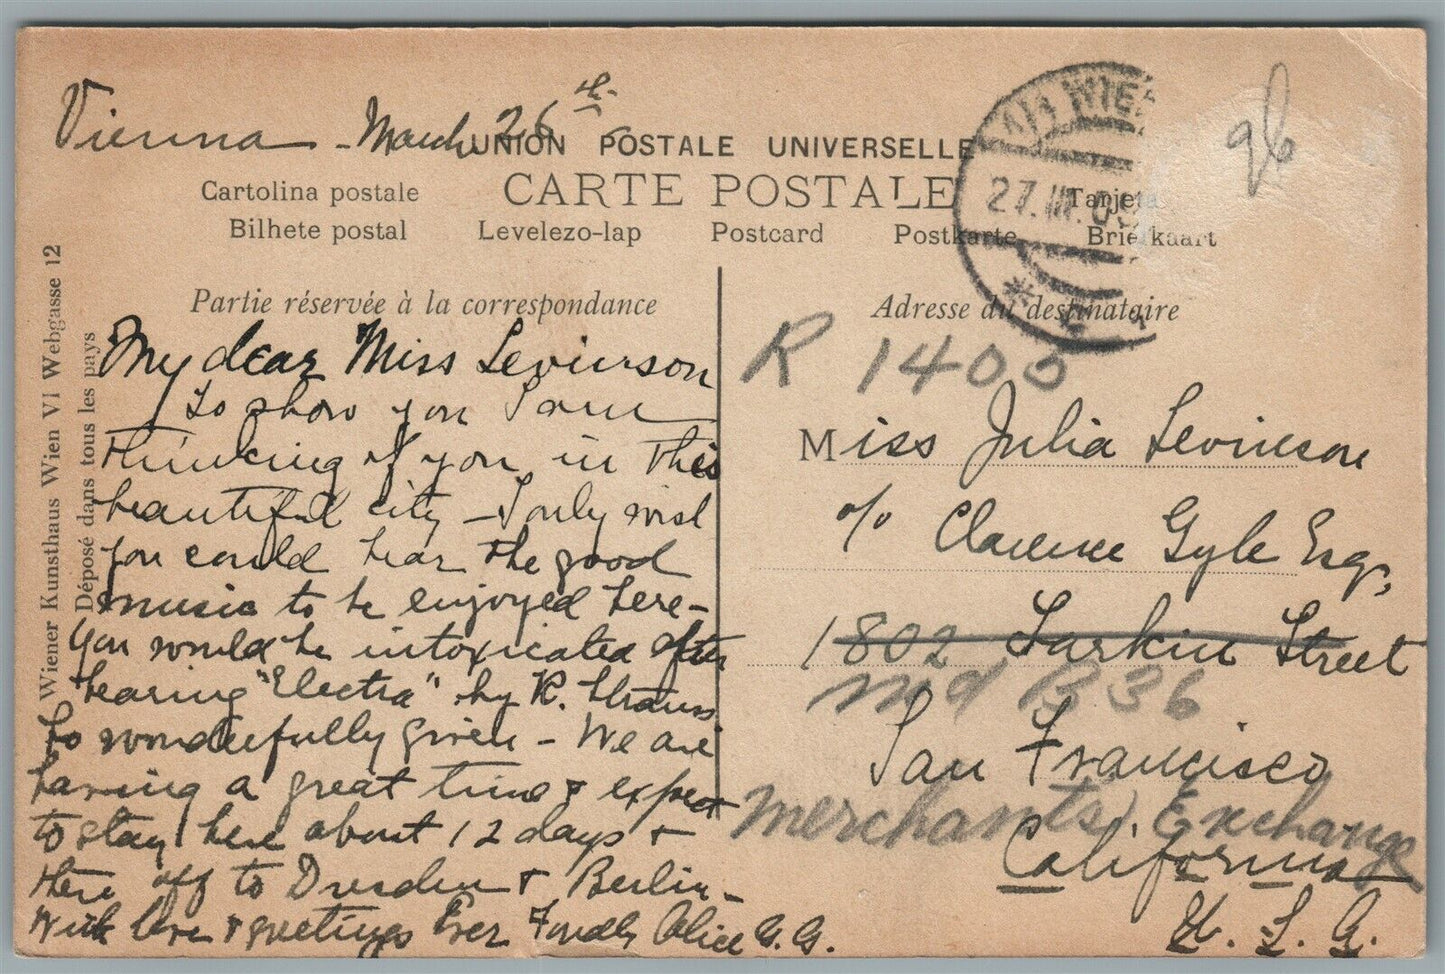 Vienna - March 26th
UNION POSTALE UNIVERSELLE
CARTE POSTALE
Cartolina postale
Tarjeta
Bilhete postal Levelezo-lap Postcard Postkarte Briefkaart
WIE
27.III.09
96
Wiener Kunsthaus Wien VI Webgasse 12
Déposé dans tous les pays
Partie réservée à la correspondance
My dear Miss Levinson
To show you I am
thinking of you in this
beautiful city - I only wish
you could hear the good
music to be enjoyed here -
You would be intoxicated after
hearing "Electra" by R. Strauss
so wonderfully given - We are
having a great time & expect
to stay here about 12 days &
then off to Dresden & Berlin -
With love & greetings Ever Fondly Alice G. G.
Adresse du destinataire
R 1400
Miss Julia Levinson
c/o Clarence Gyle Esq,
1802 Larkin Street
md B 36
San Francisco
Merchants Exchange
California
U. S. A.